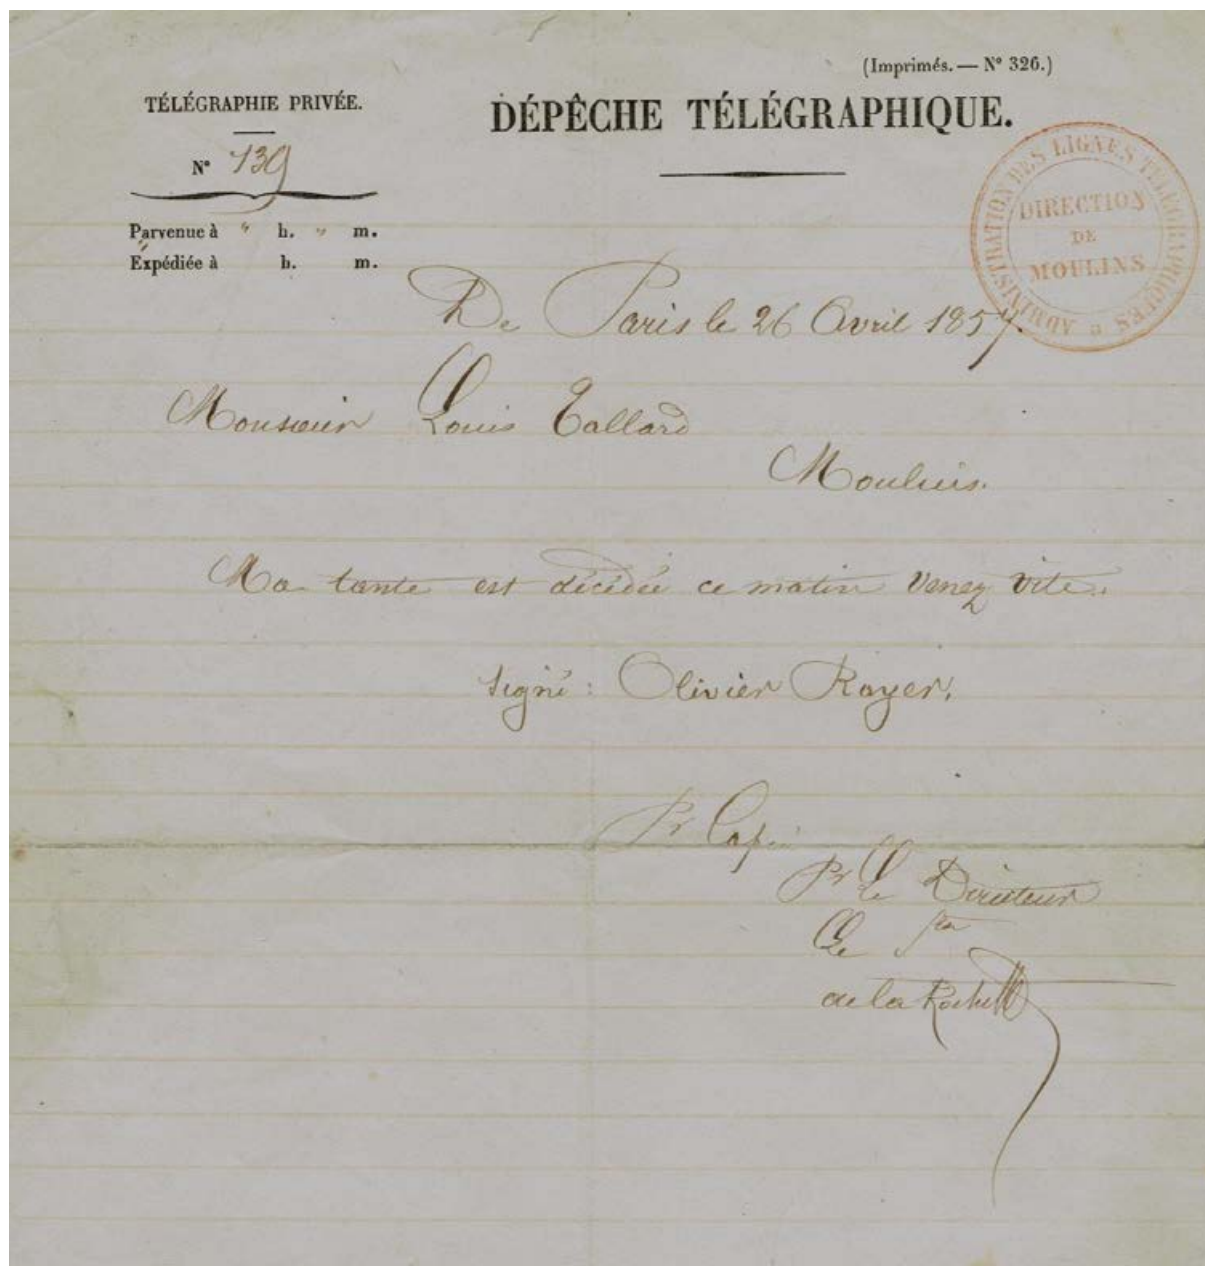 (Imprimés. — N° 326.)
TÉLÉGRAPHIE PRIVÉE.
DÉPÊCHE TÉLÉGRAPHIQUE.
N° 139
Parvenue à " h. " m.
Expédiée à " h. m.
ADMINISTRATION DES LIGNES TÉLÉGRAPHIQUES
DIRECTION
DE
MOULINS
De Paris le 26 Avril 1857.
Monsieur Louis Tallard
Moulins.
Ma tante est décédée ce matin Venez vite.
Signé : Olivier Rayer.
Pr Cop.
Pr Le Directeur
Le
de la